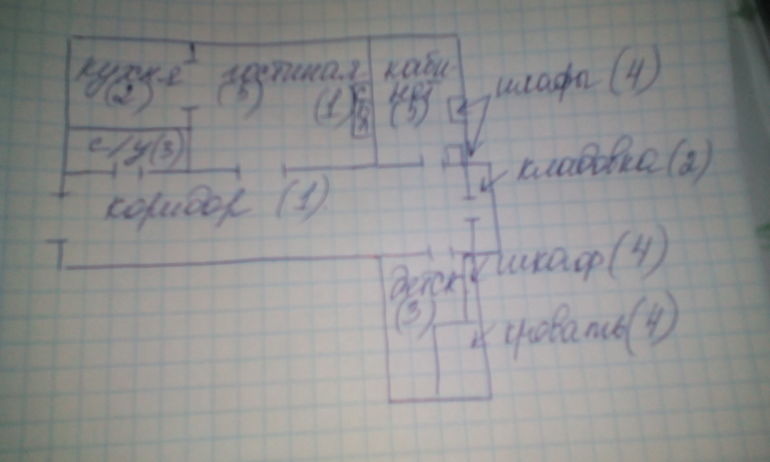 кухня
(2)
гостиная
(3)
(1)
каби-
нет
(3)
шкафы (4)
с/у (3)
кладовка (2)
коридор (1)
шкаф (4)
детск
(3)
кровать (4)